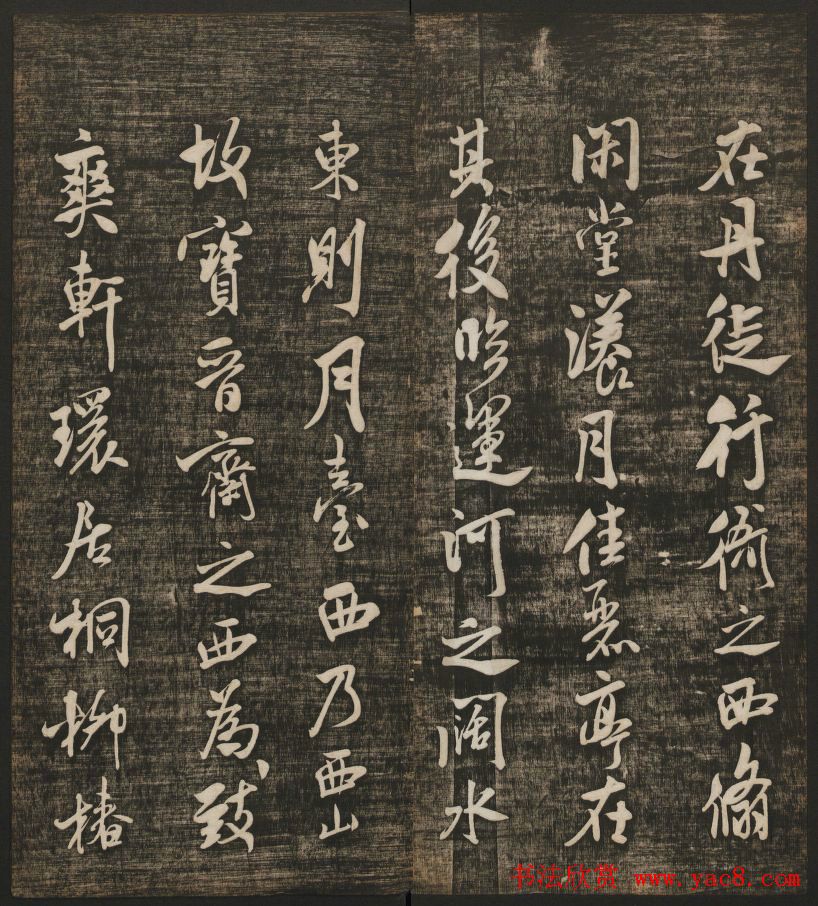 在丹徒行衙之西翛
閑堂漾月佳麗亭在
其後臨運河之闊水
東則月臺西乃西山
故寶晉齋之西為致
爽軒環居桐柳椿
书法欣赏 www.yac8.com